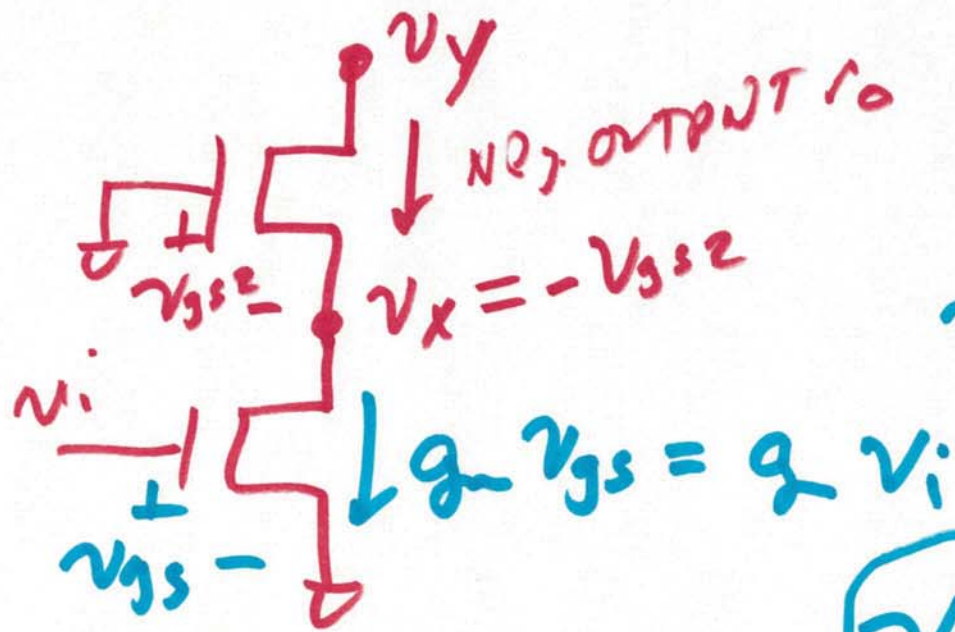 vy
NEG OUTPUT ro
vgs2 -
vx = - vgs2
vi
gm vgs = gm vi
vgs -